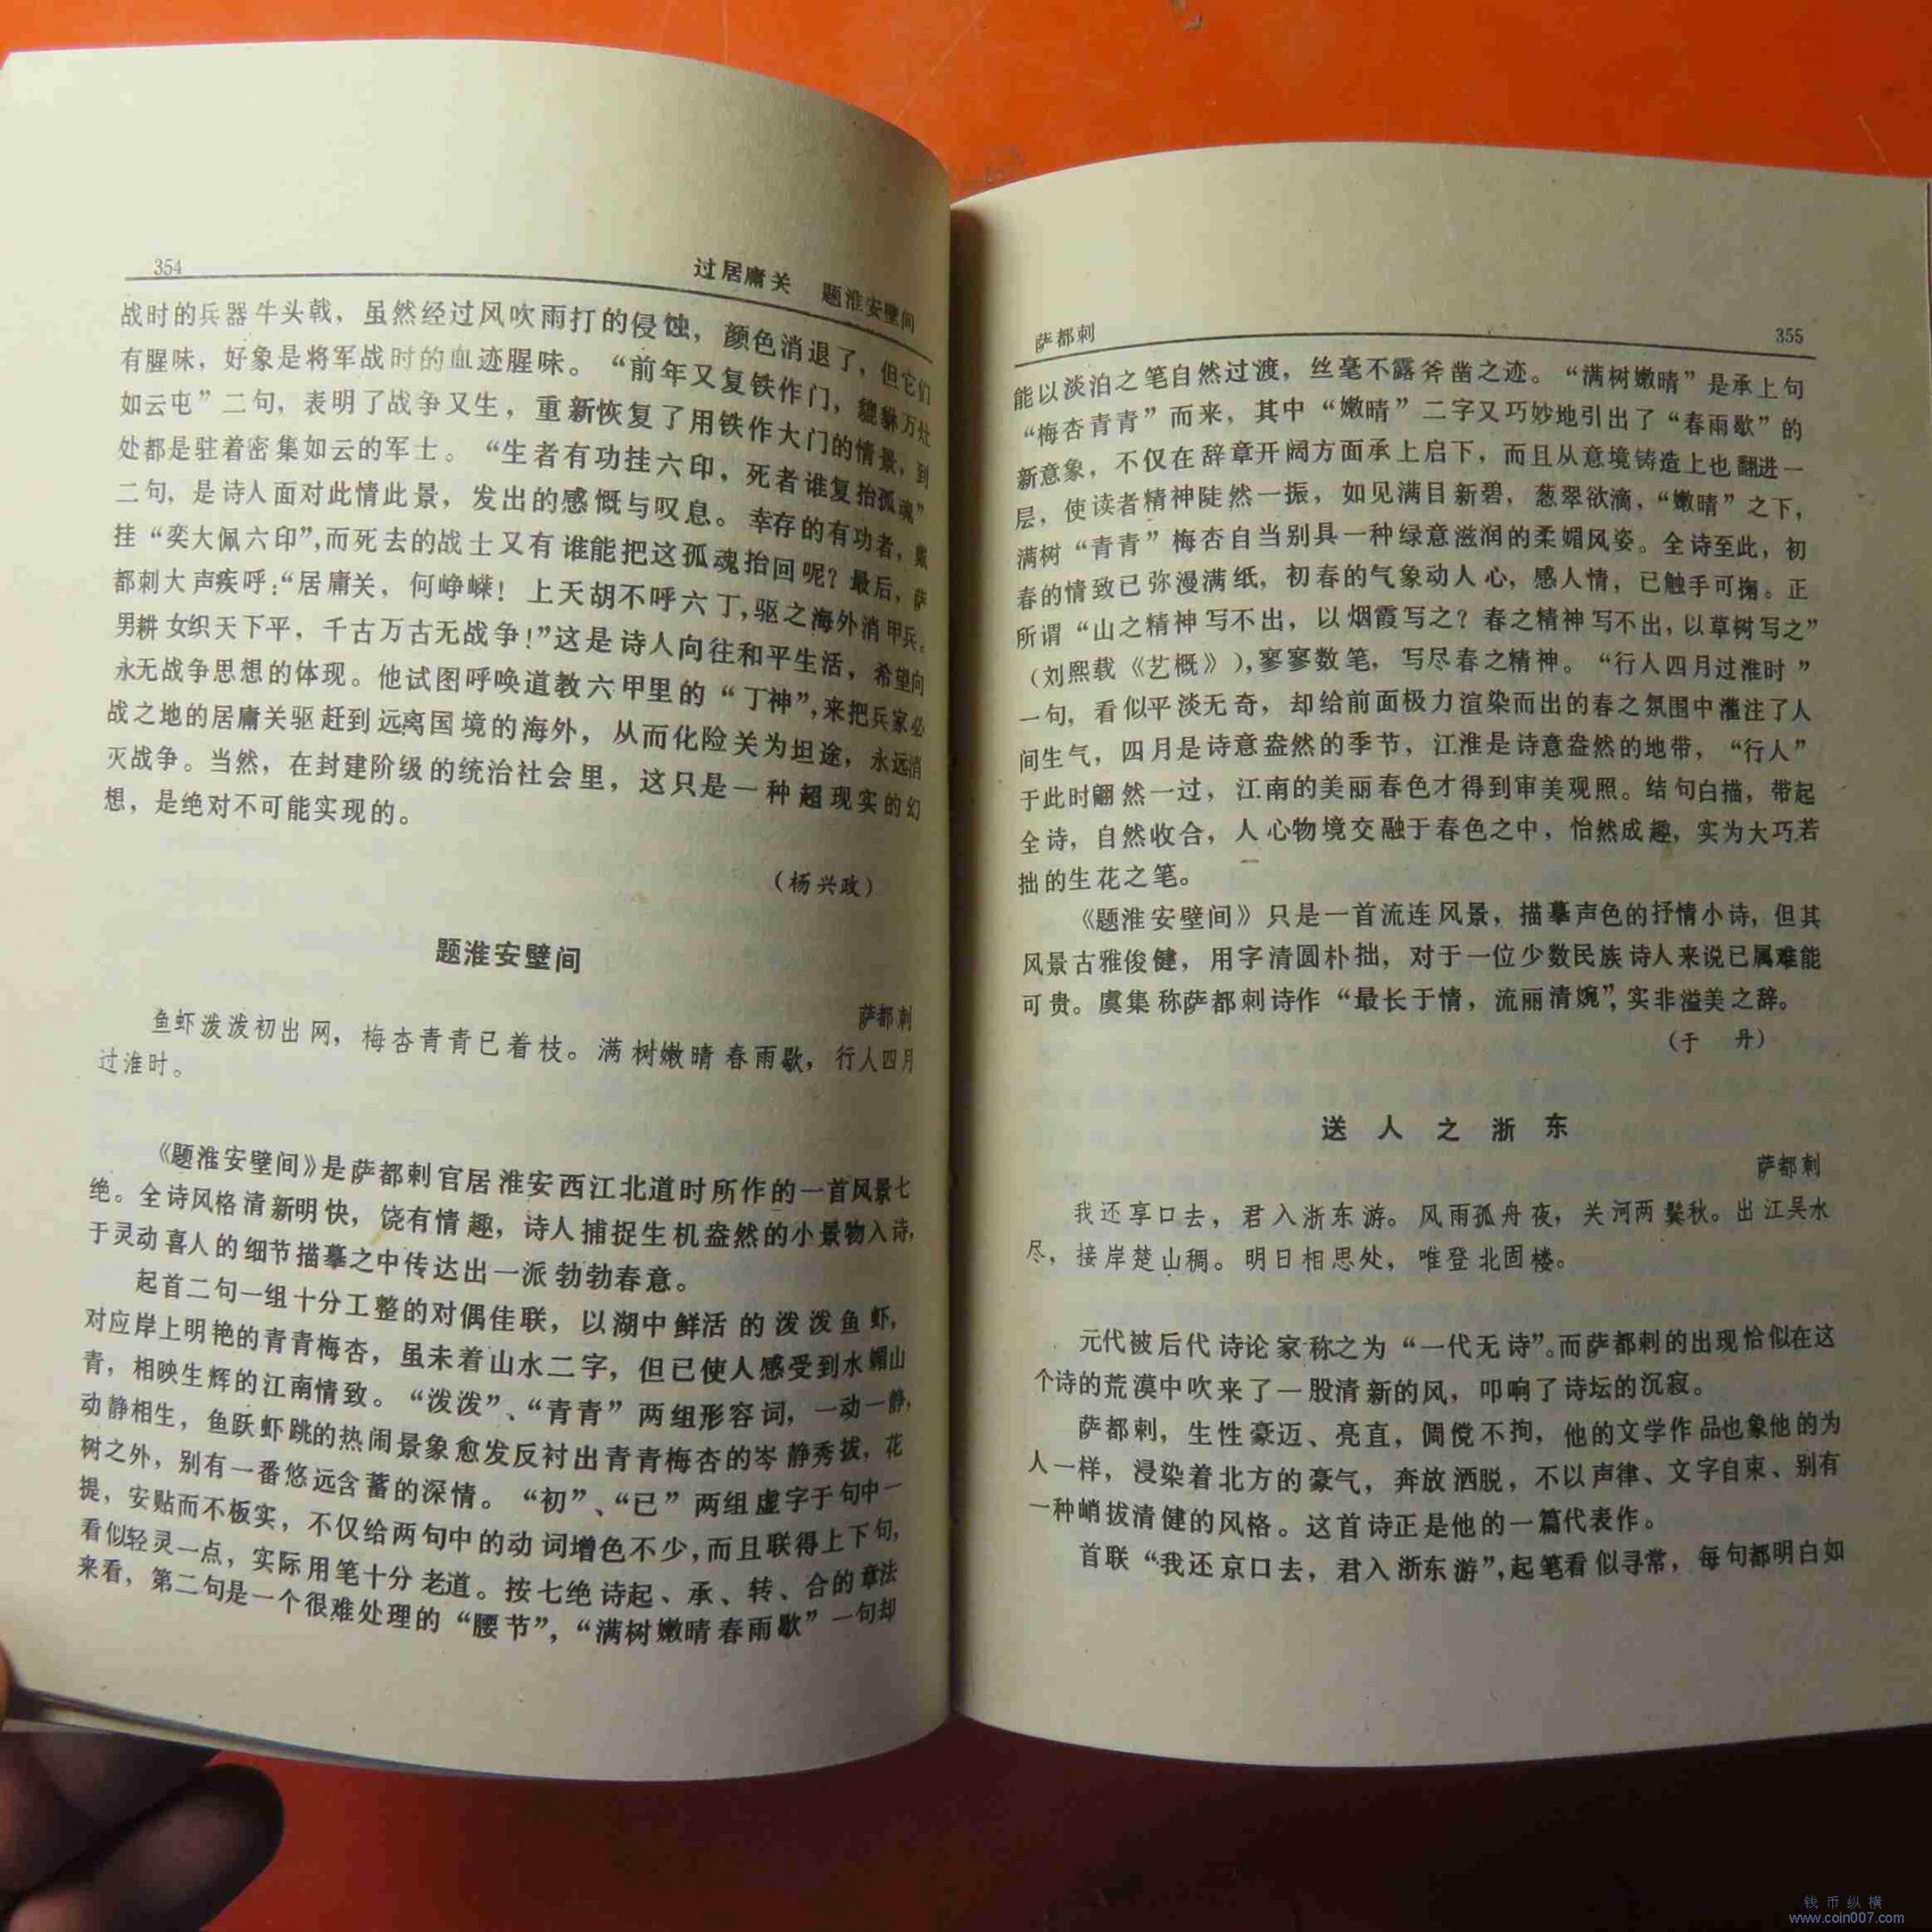 354
过居庸关 题淮安壁间
战时的兵器牛头戟，虽然经过风吹雨打的侵蚀，颜色消退了，但它们
有腥味，好象是将军战时的血迹腥味。“前年又复铁作门，貔貅万灶
如云屯”二句，表明了战争又生，重新恢复了用铁作大门的情景，到
处都是驻着密集如云的军士。“生者有功挂六印，死者谁复抬孤魂”
二句，是诗人面对此情此景，发出的感慨与叹息。幸存的有功者，戴
挂“奕大佩六印”，而死去的战士又有谁能把这孤魂抬回呢？最后，萨
都刺大声疾呼：“居庸关，何峥嵘！上天胡不呼六丁，驱之海外消甲兵。
男耕女织天下平，千古万古无战争！”这是诗人向往和平生活，希望向
永无战争思想的体现。他试图呼唤道教六甲里的“丁神”，来把兵家必
战之地的居庸关驱赶到远离国境的海外，从而化险关为坦途，永远消
灭战争。当然，在封建阶级的统治社会里，这只是一种超现实的幻
想，是绝对不可能实现的。
（杨兴政）
题淮安壁间
萨都刺
鱼虾泼泼初出网，梅杏青青已着枝。满树嫩晴春雨歇，行人四月
过淮时。
《题淮安壁间》是萨都刺官居淮安西江北道时所作的一首风景七
绝。全诗风格清新明快，饶有情趣，诗人捕捉生机盎然的小景物入诗，
于灵动喜人的细节描摹之中传达出一派勃勃春意。
起首二句一组十分工整的对偶佳联，以湖中鲜活的泼泼鱼虾，
对应岸上明艳的青青梅杏，虽未着山水二字，但已使人感受到水媚山
青，相映生辉的江南情致。“泼泼”、“青青”两组形容词，一动一静，
动静相生，鱼跃虾跳的热闹景象愈发反衬出青青梅杏的岑静秀拔，花
树之外，别有一番悠远含蓄的深情。“初”、“已”两组虚字于句中一
提，安贴而不板实，不仅给两句中的动词增色不少，而且联得上下句，
看似轻灵一点，实际用笔十分老道。按七绝诗起、承、转、合的章法
来看，第二句是一个很难处理的“腰节”，“满树嫩晴春雨歇”一句却
萨都刺
355
能以淡泊之笔自然过渡，丝毫不露斧凿之迹。“满树嫩晴”是承上句
“梅杏青青”而来，其中“嫩晴”二字又巧妙地引出了“春雨歇”的
新意象，不仅在辞章开阔方面承上启下，而且从意境铸造上也翻进一
层，使读者精神陡然一振，如见满目新碧，葱翠欲滴，“嫩晴”之下，
满树“青青”梅杏自当别具一种绿意滋润的柔媚风姿。全诗至此，初
春的情致已弥漫满纸，初春的气象动人心，感人情，已触手可掬。正
所谓“山之精神写不出，以烟霞写之？春之精神写不出，以草树写之”
（刘熙载《艺概》），寥寥数笔，写尽春之精神。“行人四月过淮时”
一句，看似平淡无奇，却给前面极力渲染而出的春之氛围中灌注了人
间生气，四月是诗意盎然的季节，江淮是诗意盎然的地带，“行人”
于此时翩然一过，江南的美丽春色才得到审美观照。结句白描，带起
全诗，自然收合，人心物境交融于春色之中，怡然成趣，实为大巧若
拙的生花之笔。
《题淮安壁间》只是一首流连风景，描摹声色的抒情小诗，但其
风景古雅俊健，用字清圆朴拙，对于一位少数民族诗人来说已属难能
可贵。虞集称萨都刺诗作“最长于情，流丽清婉”，实非溢美之辞。
（于 丹）
送人之浙东
萨都刺
我还享口去，君入浙东游。风雨孤舟夜，关河两鬓秋。出江吴水
尽，接岸楚山稠。明日相思处，唯登北固楼。
元代被后代诗论家称之为“一代无诗”。而萨都刺的出现恰似在这
个诗的荒漠中吹来了一股清新的风，叩响了诗坛的沉寂。
萨都刺，生性豪迈、亮直，倜傥不拘，他的文学作品也象他的为
人一样，浸染着北方的豪气，奔放洒脱，不以声律、文字自束、别有
一种峭拔清健的风格。这首诗正是他的一篇代表作。
首联“我还京口去，君入浙东游”，起笔看似寻常，每句都明白如
钱币纵横
www.coin007.com